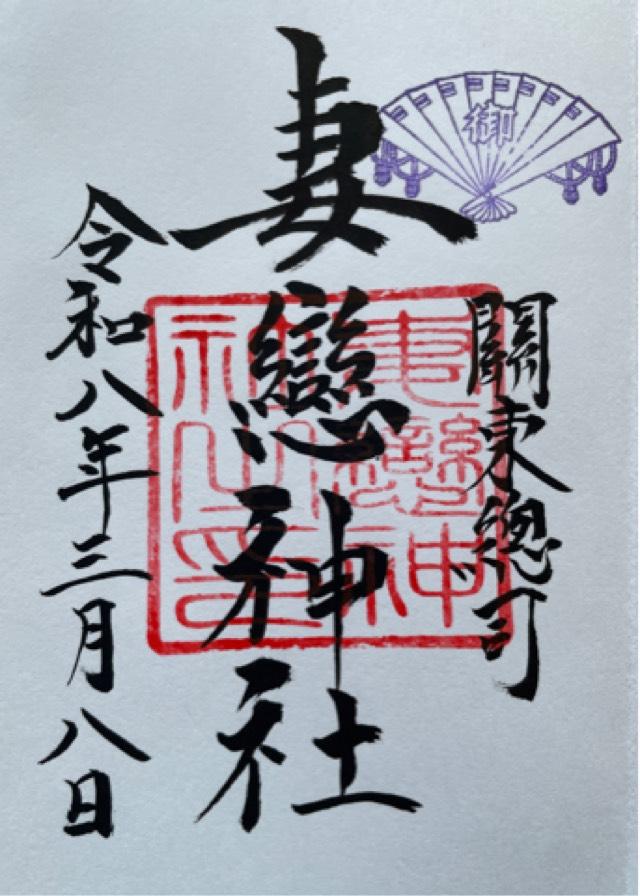 御
關東總司
妻戀神社
妻戀神
社之印
令和八年三月八日